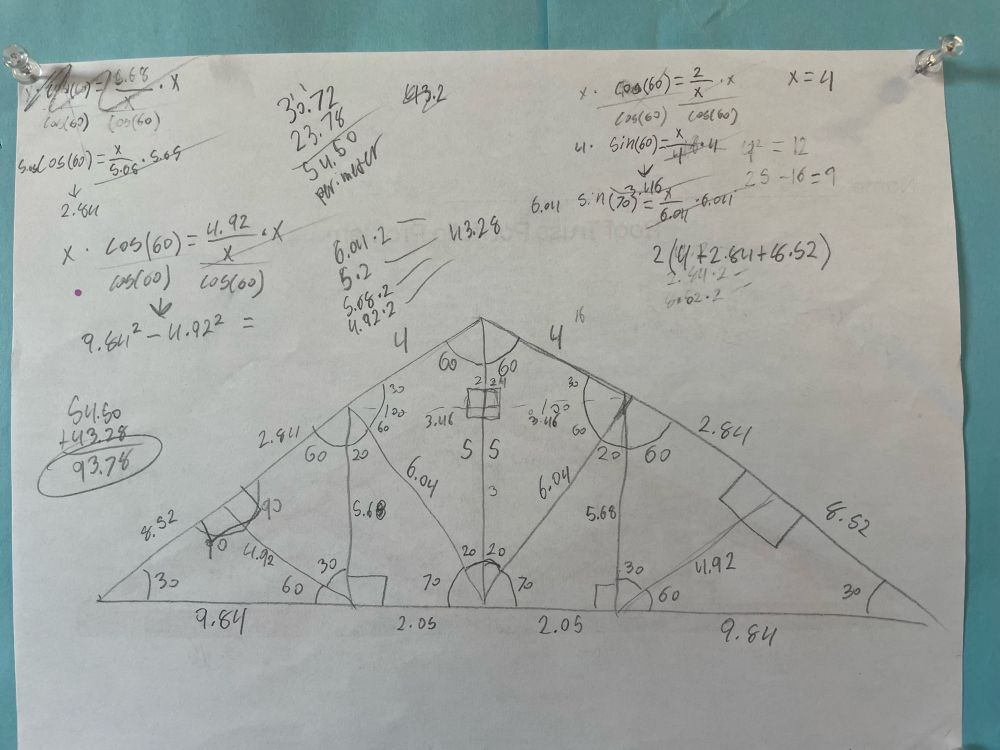 cos(60) = 5.68/x · x
cos(60) cos(60)
5.05 cos(60) = x/5.05 · 5.05
↓
2.84
x · cos(60) = 4.92/x · x
cos(60) cos(60)
↓
9.84² - 4.92² =
30.72
23.78
54.50
perimeter
43.2
6.04·2
5.2
5.68·2
4.92·2
43.28
x · cos(60) = 2/x · x
cos(60) cos(60)
x = 4
4 · sin(60) = x/4 · 4
↓
3.46
6.04 sin(70) = x/6.04 · 6.04
4² = 12
25 - 16 = 9
2(4 + 2.84 + 8.52)
2.84·2
8.52·2
54.50
+43.28
93.78
4 4 16
60 60
30 2 2 4 30
100 100
60 3.46 3.46 60
2.84 2.84
60 20 5 5 20 60
6.04 3 6.04
8.52 90 5.68 5.68 8.52
90 4.92 4.92
30 60 30 70 20 20 70 30 60 30
9.84 2.05 2.05 9.84